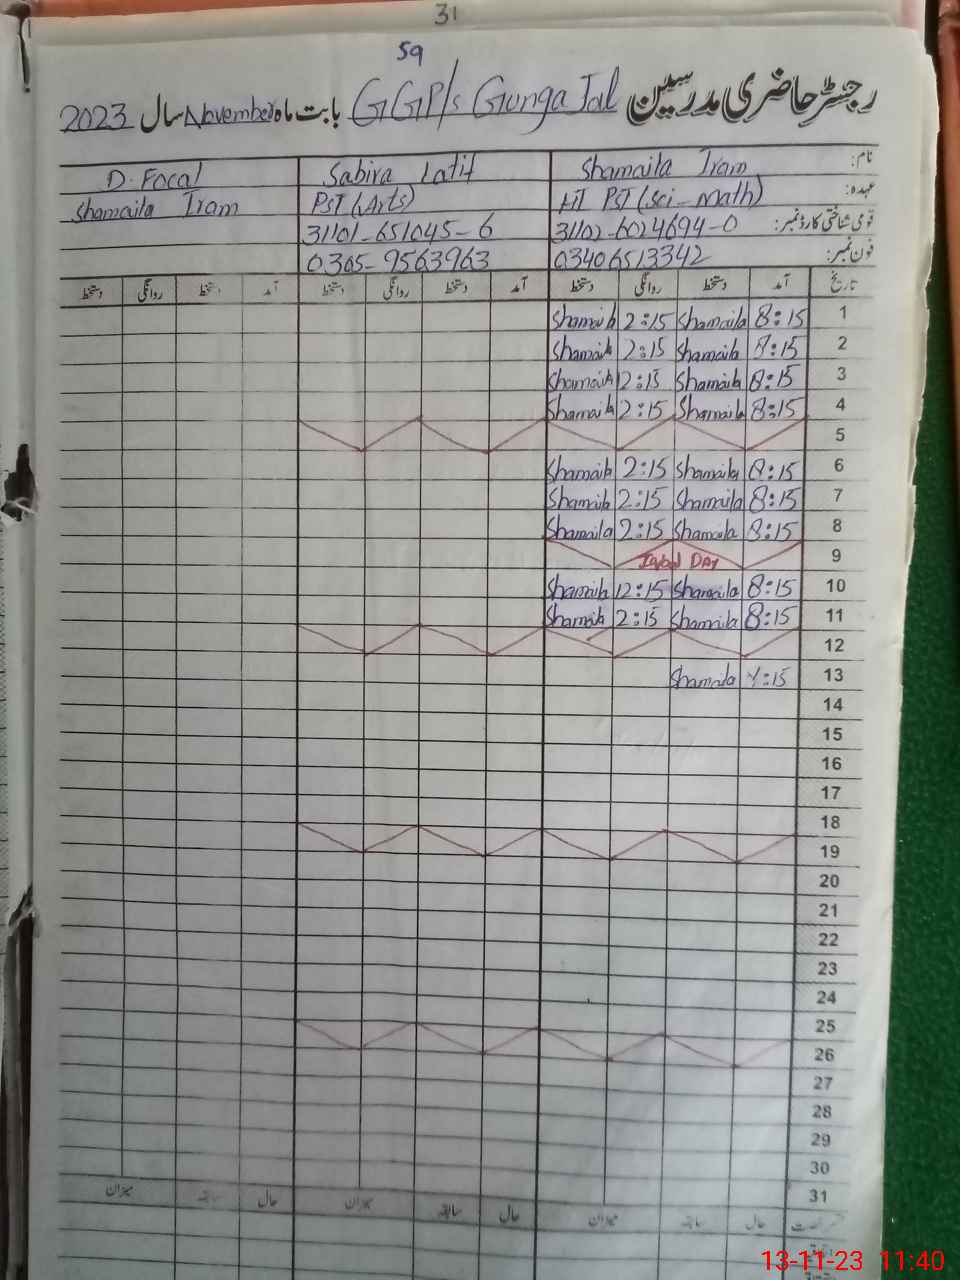 31
59
رجسٹر حاضری مدرسین GGP/s Gunga Jal بابت ماہ November سال 2023
نام: Shamaila Iram Sabira Latif D. Focal
عہدہ: HT PST (Sci-Math) PST (Arts) Shamaila Iram
قومی شناختی کارڈ نمبر: 31102-6024694-0 31101-651045-6
فون نمبر: 03406513342 0305-9563963
تاریخ آمد دستخط روانگی دستخط آمد دستخط روانگی دستخط آمد دستخط روانگی دستخط
1 8:15 Shamaila 2:15 Shamaila
2 8:15 Shamaila 2:15 Shamaila
3 8:15 Shamaila 2:15 Shamaila
4 8:15 Shamaila 2:15 Shamaila
5
6 8:15 Shamaila 2:15 Shamaila
7 8:15 Shamaila 2:15 Shamaila
8 8:15 Shamaila 2:15 Shamaila
9 Iqbal DAY
10 8:15 Shamaila 12:15 Shamaila
11 8:15 Shamaila 2:15 Shamaila
12
13 :15 Shamaila
14
15
16
17
18
19
20
21
22
23
24
25
26
27
28
29
30
31
حال سابقہ میزان حال سابقہ میزان حال سابقہ میزان
13-11-23 11:40